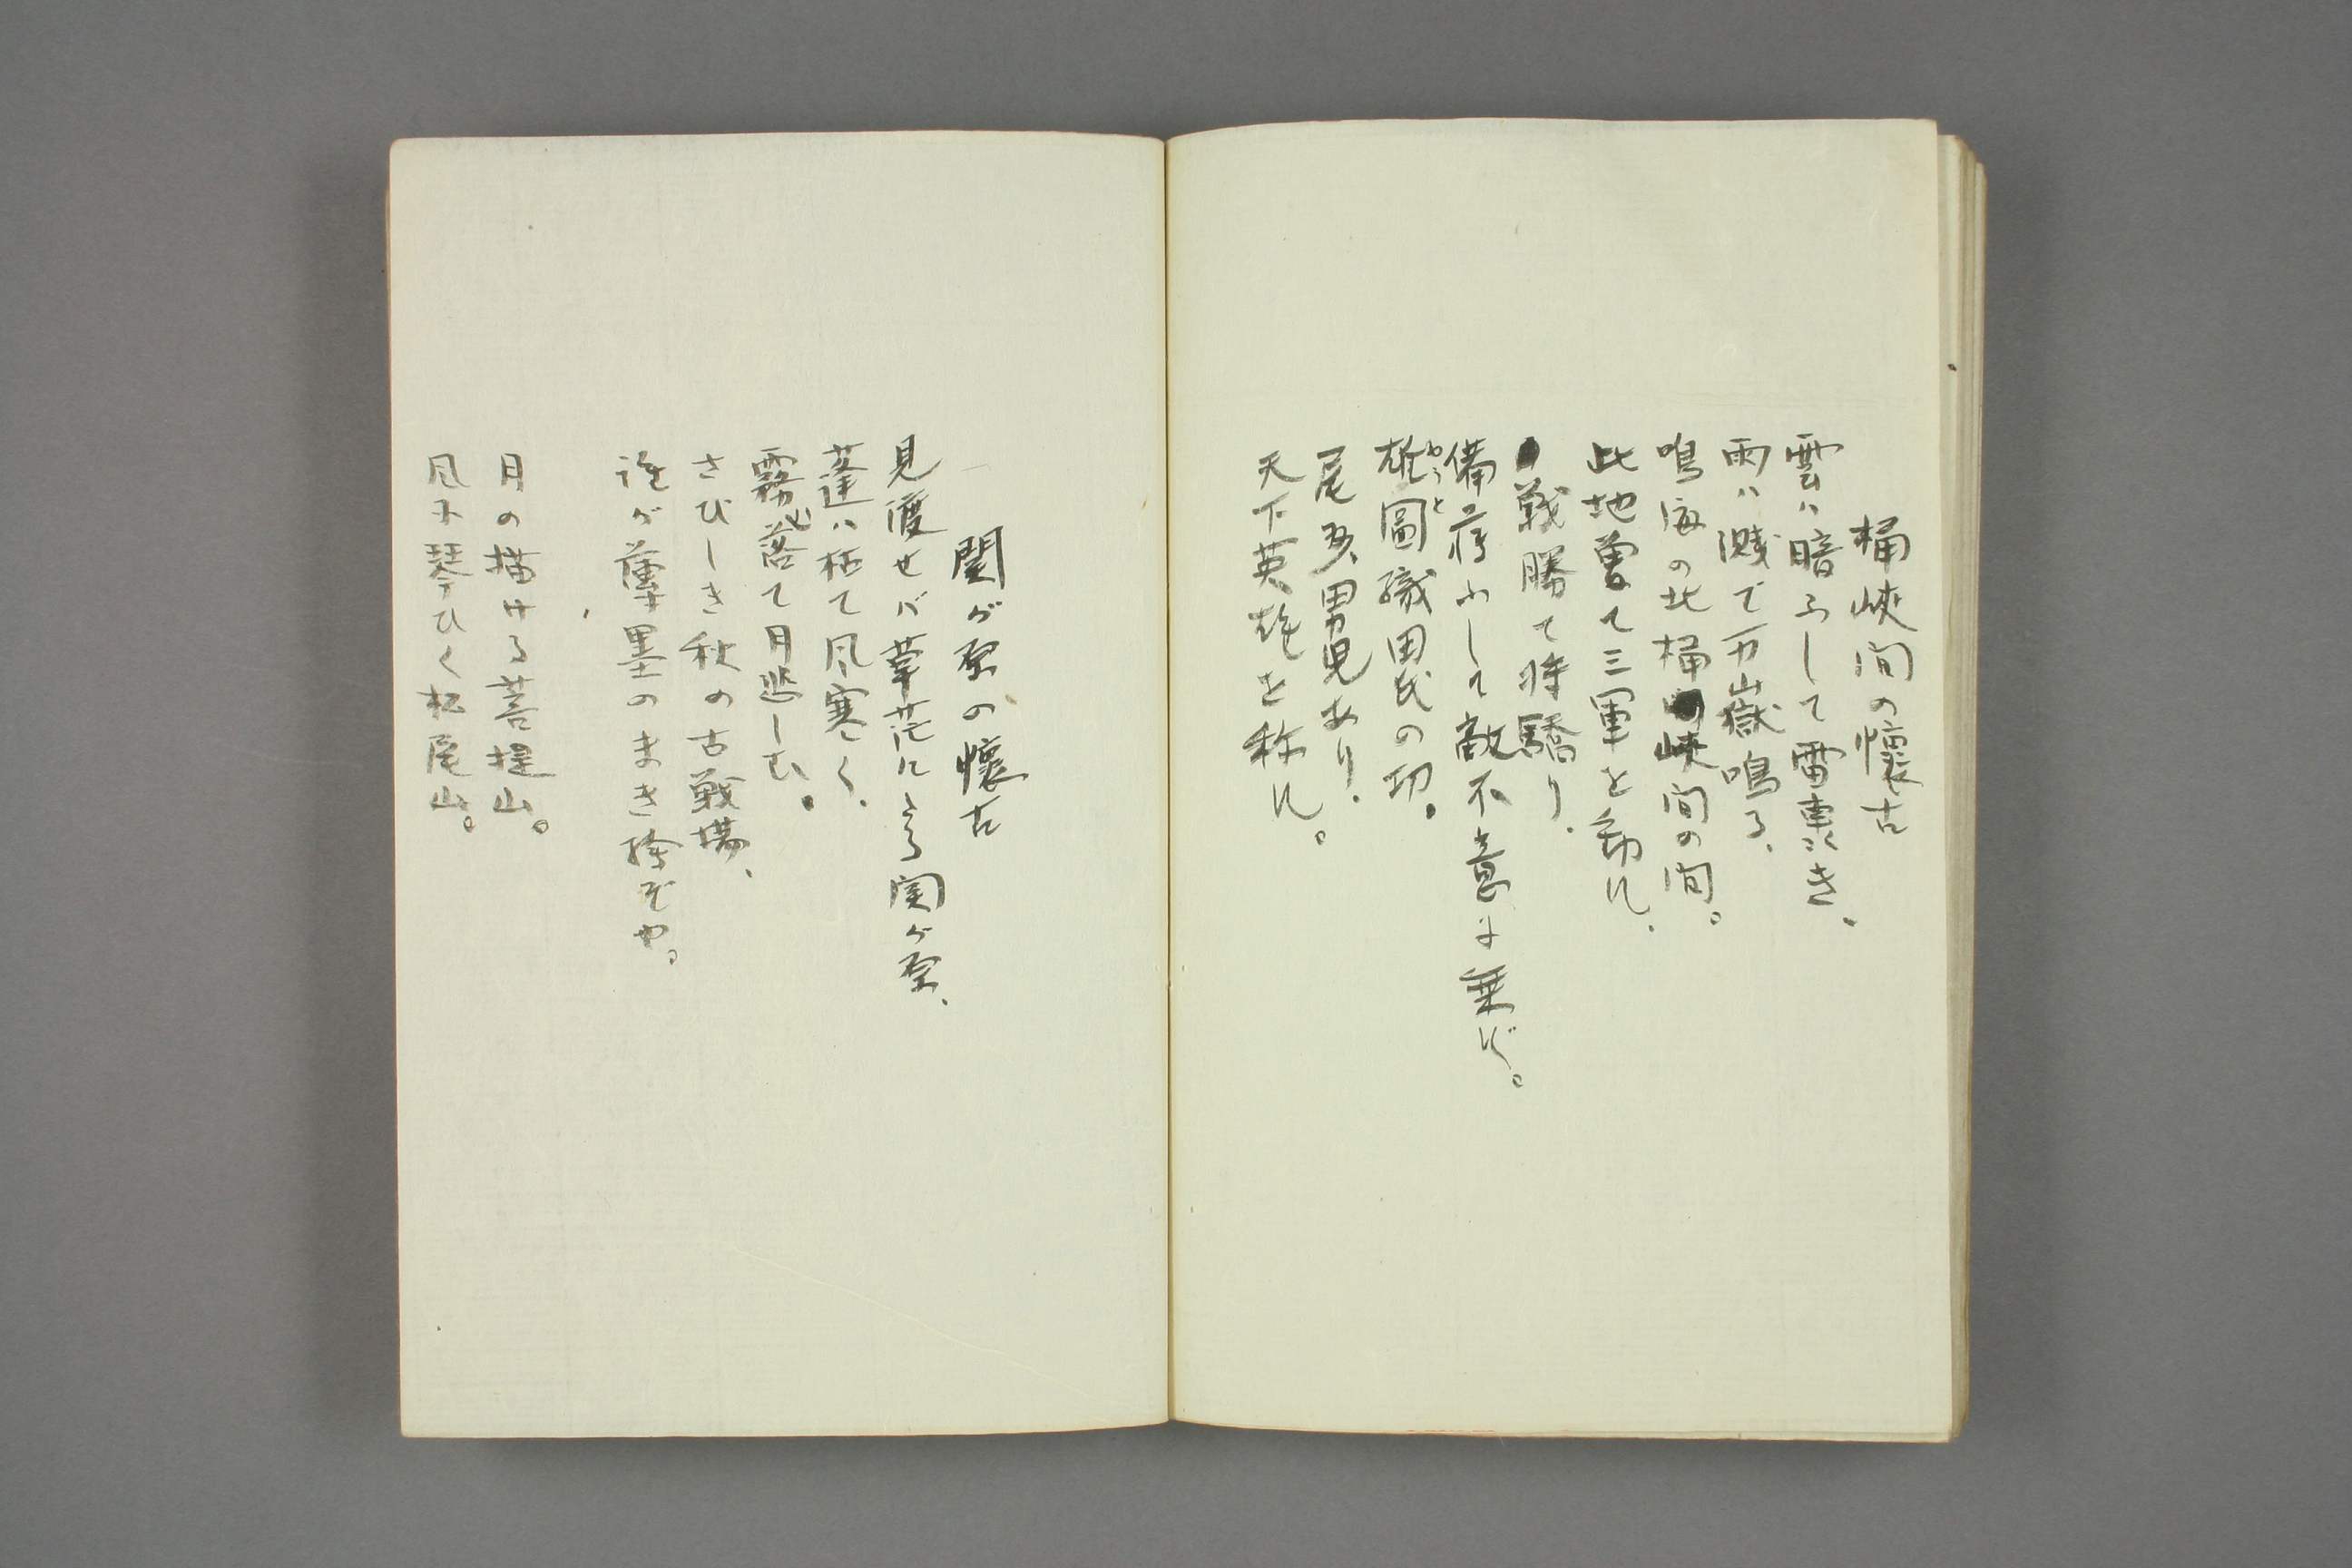 桶峽間の懷古
雲ハ暗ふして雷車轟き、
雨ハ濺で万嶽鳴る、
鳴海の北桶峽間の間。
此地曽て三軍を動す、
戦勝て将驕り、
備荐ふして敵不意に乗ず。
雄圖織田氏の功。
尾張男児あり、
天下英雄と称す。
関が原の懷古
見渡せバ草茫々たる関が原、
蓬ハ枯て風寒く、
霧落て月悲しむ。
さびしき秋の古戦場、
誰が薄墨のまき絵ぞや。
月の描ける菩提山。
風に琴ひく松尾山。